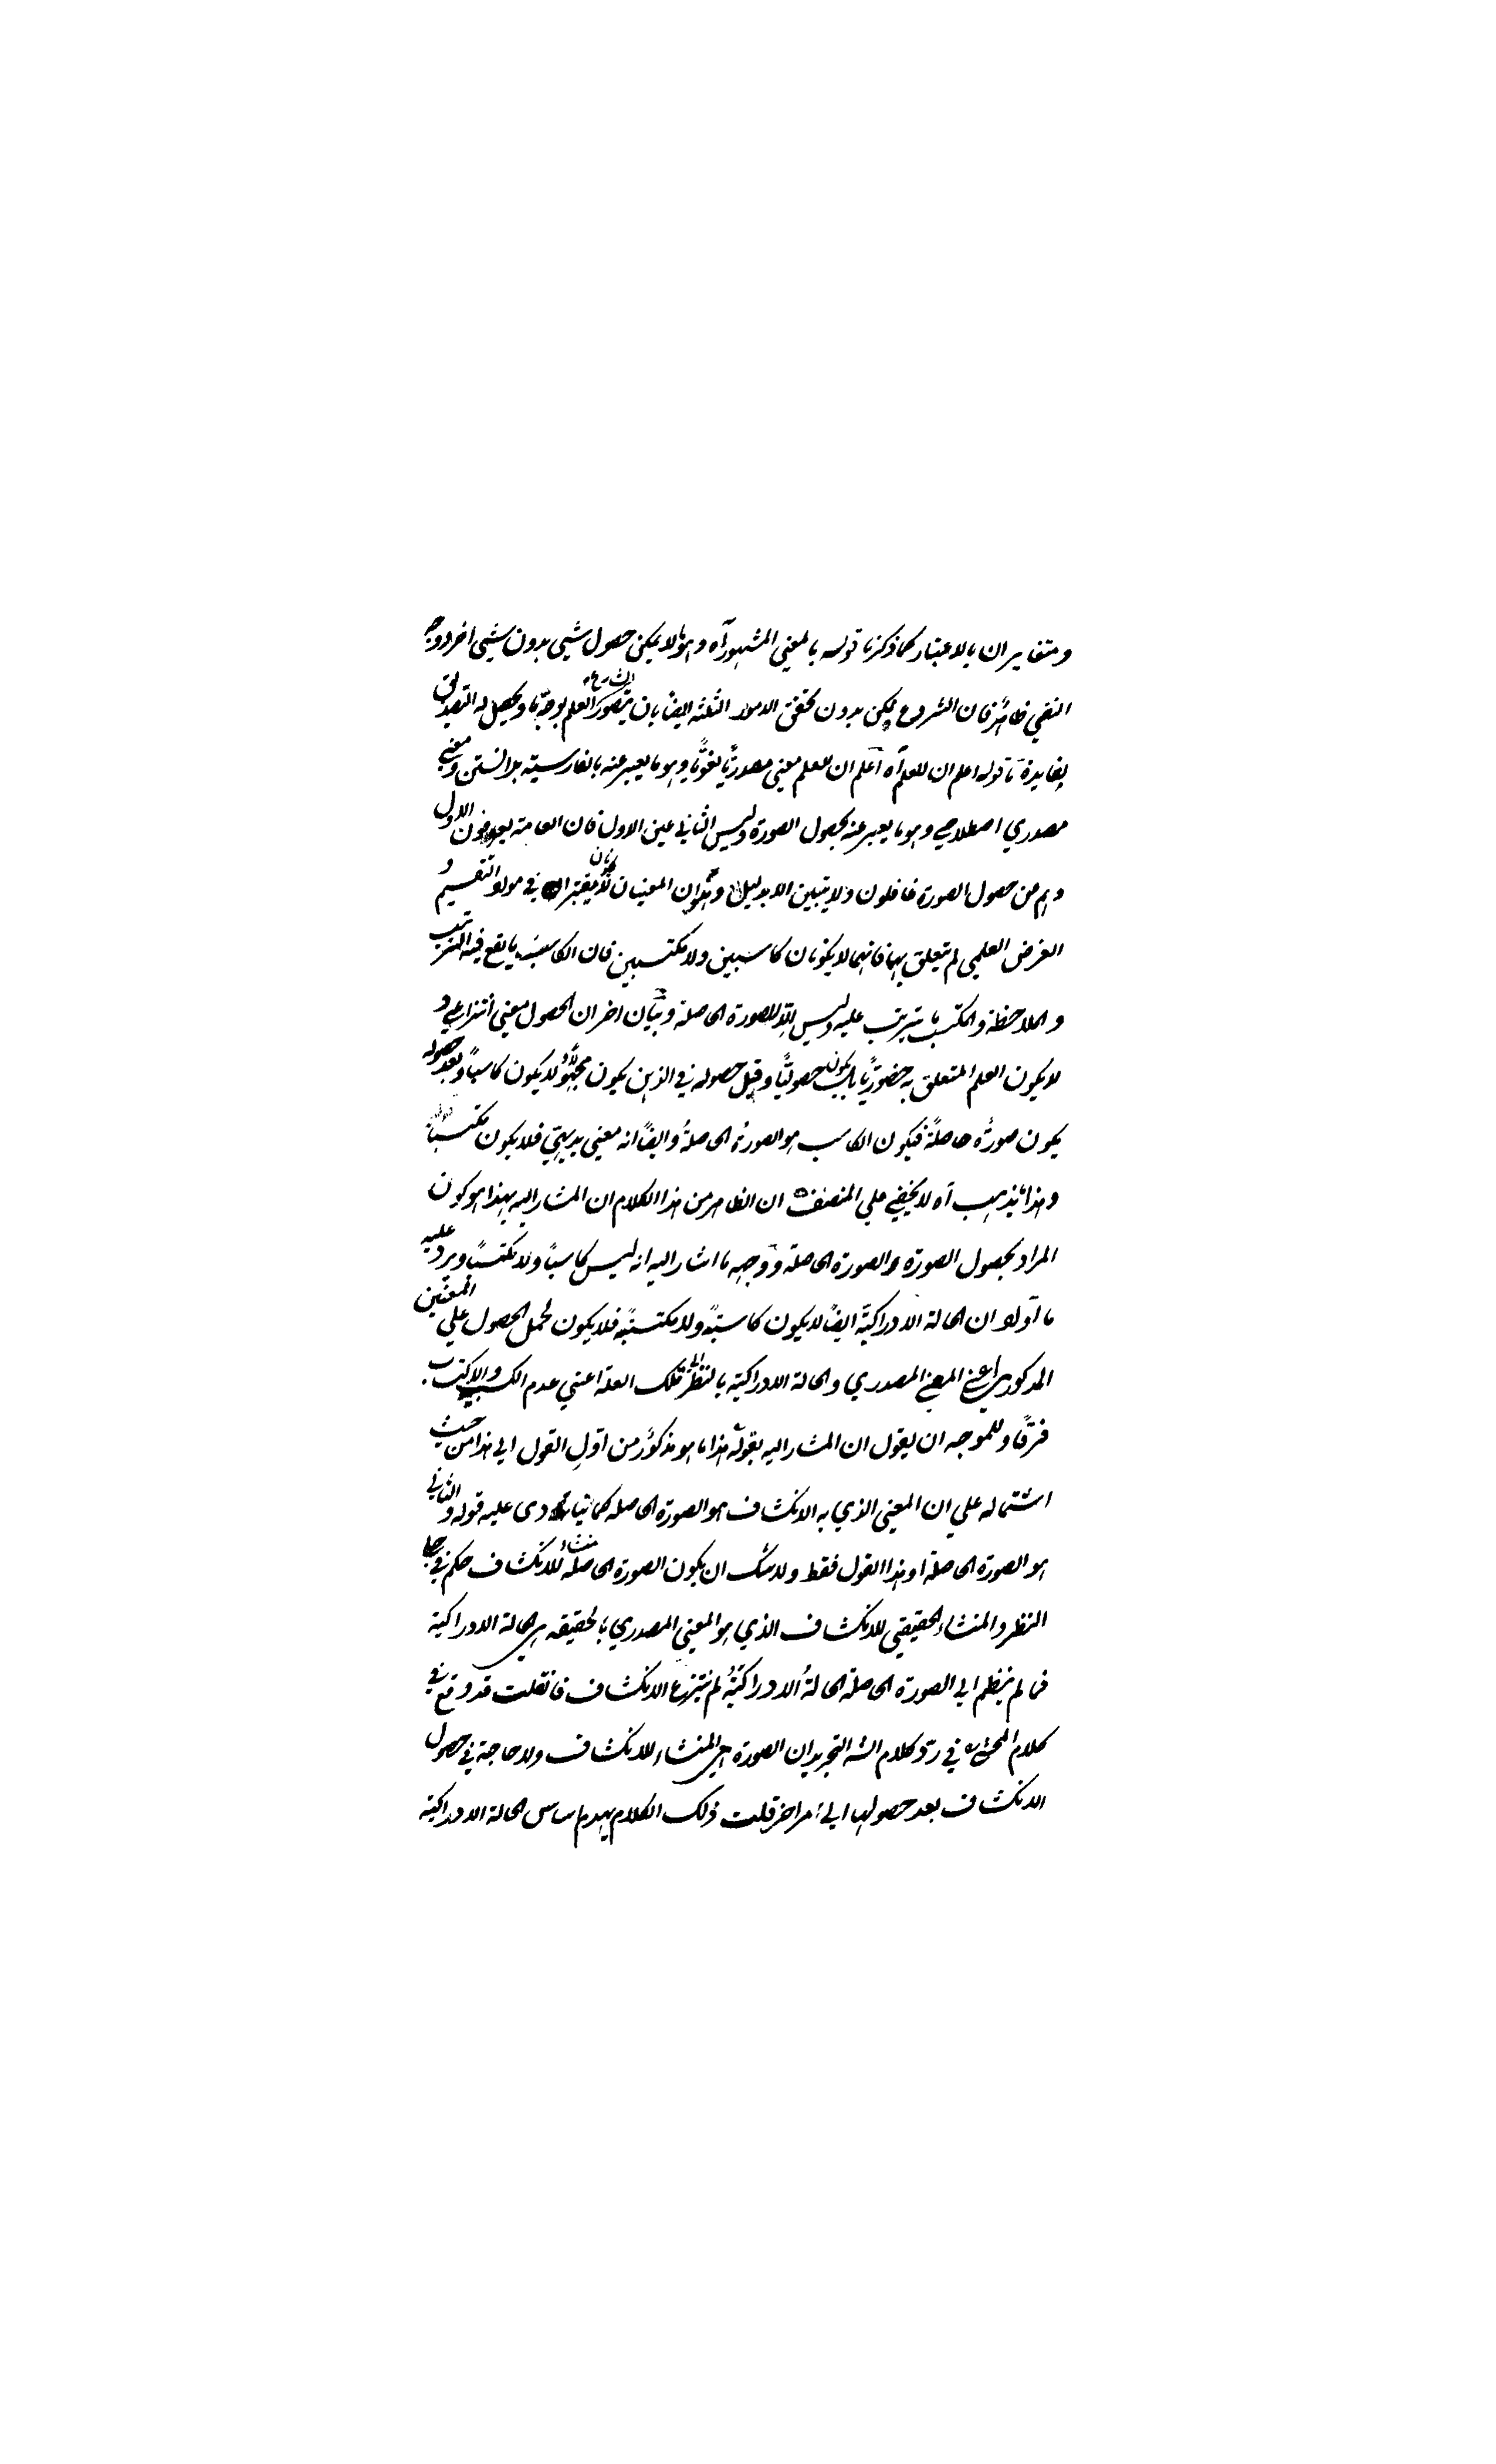 ومتغايران بالاعتبار كما ذكرنا قوله بالمعني المشهور آه وهو ما لا يمكن حصول شيي بدون شيي اخر ووجه
النفي ظاهر فان الشروع يمكن بدون تحقق الامور الثلثة ايضًا بان يتصور الشارع العلم بوجهٍ ما ويحصل له التصديق
بفايدة ما قوله اعلم ان للعلم آه اعلم ان للعلم معني مصدريًا لغويًا وهو ما يعبر عنه بالفارسية بدانستن ومعني
مصدري اصطلاحي وهو ما يعبر عنه بحصول الصورة وليس الثاني عين الاول فان العامة يعرفون الاول
وهم من حصول الصورة غافلون ولا يتبين الا بدليل وهذان المعنيان لا يعتبران في مورد التقسيم و
الغرض العلمي لم يتعلق بهما فانهما لا يكونان كاسبين ولا مكتسبين فان الكاسب ما يقع فيه الترتيب
والملاحظة والمكتسب ما يترتب عليه وليس الا الصورة الحاصلة وببيان اخر ان الحصول معني انتزاعي و
لا يكون العلم المتعلق به حضوريًا بل يكون حصوليًا وقبل حصوله في الذهن يكون مجهولًا ولا يكون كاسبًا وبعد حصوله
يكون صورةً حاصلةً فيكون الكاسب هو الصورةُ الحاصلةُ وايضًا انه معني بديهيّ فلا يكون مكتسبًا
وهذا يذهب آه لا يخفي علي المنصف ان الظاهر من هذا الكلام ان المشار اليه بهذا هو كون
المراد بحصول الصورة والصورة الحاصلة ووجهه ما اشار اليه انه ليس كاسبًا ولا مكتسبًا ويرد عليه
ما اولًا ان الحالة الادراكيّة ايضًا لا يكون كاسبةً ولا مكتسبةً فلا يكون لحمل الحصول علي المعنيين
المذكورين اعني المعني المصدري والحالة الادراكية بالنظر الي تلك العلة اعني عدم الكسب والاكتساب
فرقًا وللموجه ان يقول ان المشار اليه بقوله هذا ما هو مذكورٌ من اوّلِ القول الي هذا من حيث
اشتماله علي ان المعني الذي به الانكشاف هو الصورة الحاصله كما ينادي عليه قوله والثاني
هو الصورة الحاصلة او هذا القول فقط ولا شك ان يكون الصورة الحاصلة منشاءً للانكشاف حكم في جلي
النظر والمنشاء الحقيقي للانكشاف الذي هو المعني المصدري بالحقيقه هي الحالة الادراكية
فما لم ينظم الي الصورة الحاصلة الحالةُ الادراكيّةُ لم ينتزع الانكشاف فان قلت قد وقع في
كلام المحشي في ردّ كلام الشه التجريد ان الصورة هي المنشاء للانكشاف ولا حاجة في حصول
الانكشاف بعد حصولها الي امر اخر قلت ذلك الكلام يهدم اساس الحالة الادراكية